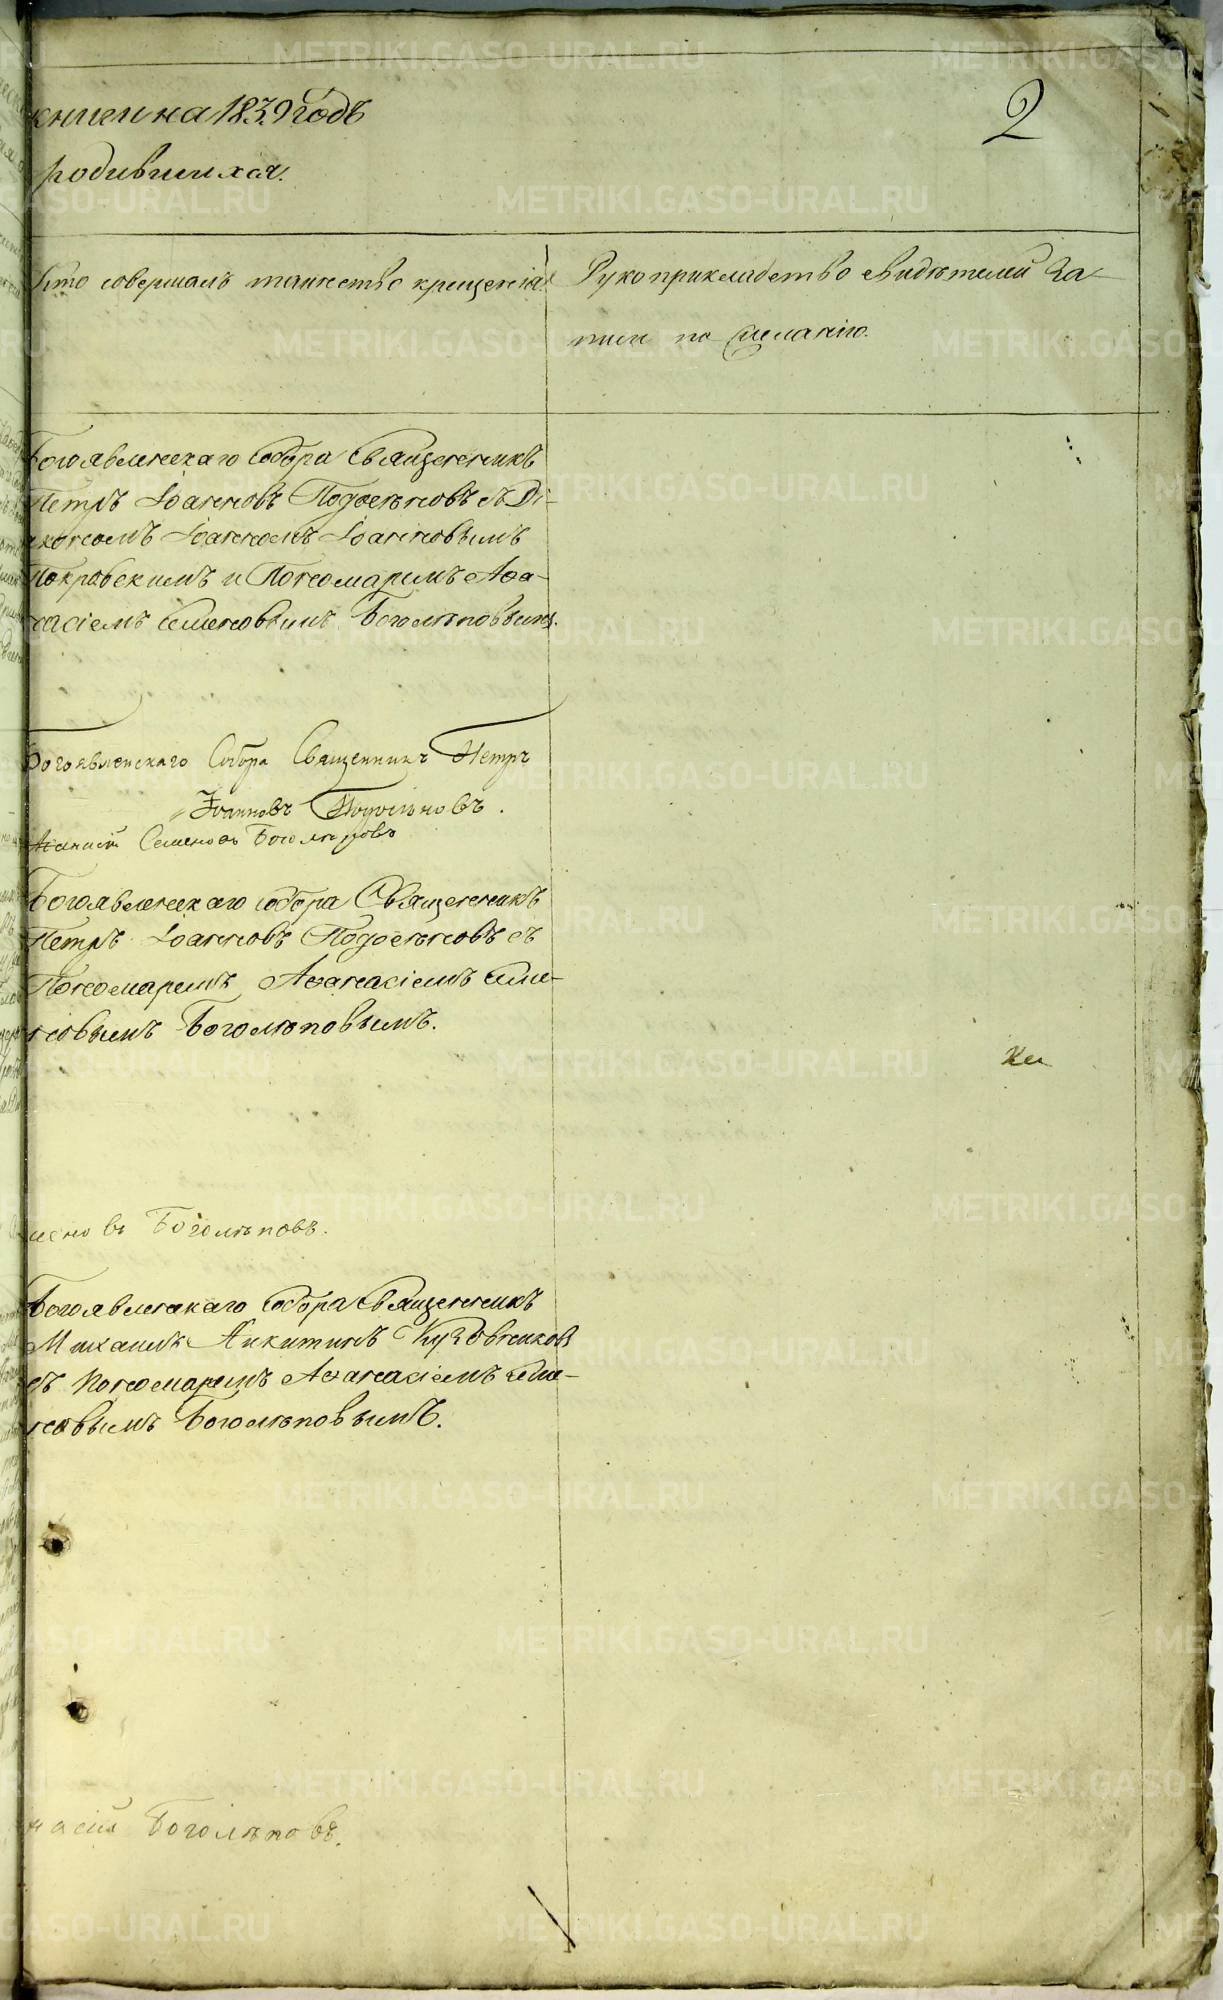 книги на 1839 годъ
2
родившихся.
Кто совершалъ таинство крещенія
Рукоприкладство свидѣтелей за-
писи по желанію.
Богоявленскаго Собора Священникъ
Петръ Іоанновъ Подосеновъ съ Ді-
акономъ Іоанномъ Іоанновымъ
Покровскимъ и Пономаремъ Аѳа-
насіемъ Семеновымъ Боголѣповымъ.
Богоявленскаго Собора Священникъ Петръ
Іоанновъ
Семеновъ Боголѣповъ
Богоявленскаго Собора Священникъ
Петръ Іоанновъ Подосеновъ съ
Пономаремъ Аѳанасіемъ Семе-
новымъ Боголѣповымъ.
меновъ Боголѣповъ.
Богоявленскаго Собора Священникъ
Михаилъ Никитинъ
съ Пономаремъ Аѳанасіемъ Семе-
новымъ Боголѣповымъ.
насій Боголѣповъ.
METRIKI.GASO-URAL.RU